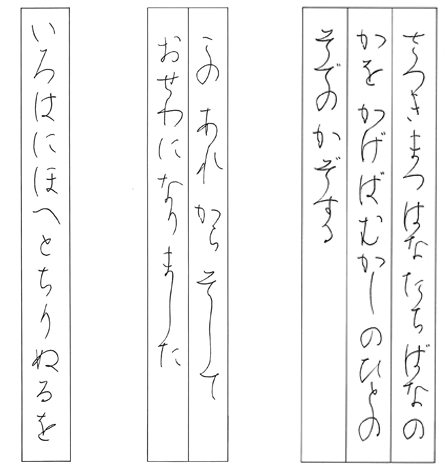 さつきまつはなたちばなの
かをかげばむかしのひとの
そでのかぞする
この あれ から そして
おせわになりました
いろはにほへとちりぬるを